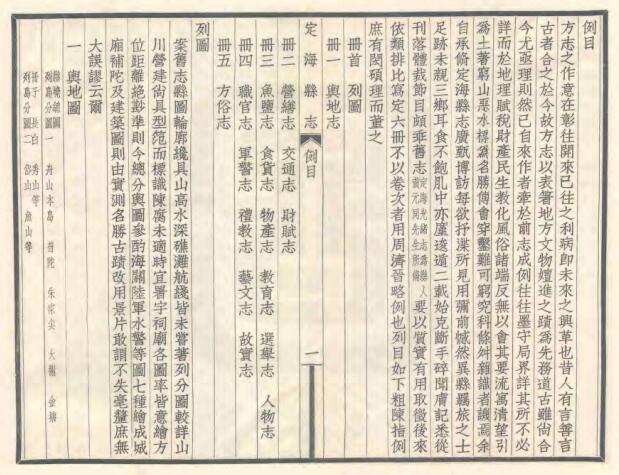 例目
方志之作意在彰往開來已往之利病即未來之興革也昔人有言善言
古者合之於今故方志以表著地方文物嬗進之蹟為先務道古雖尚合
今尤亟理則然已自來作者牽於前志成例往往墨守局界詳其所不必
詳而於地理賦稅財產民生敎化風俗諸端反無以會其要流寓清望引
為土著窮山惡水標為名勝傅會穿鑿難可窮究科條舛雜識者譏焉余
自承脩定海縣志廣甄博訪每欲抒渫所見用彌前憾然異縣羈旅之士
足跡未親三鄉耳食不飽肌中亦廑逡遁二載始克斷手碎聞膚記悉從
刊落體裁節目頗乖舊志定海光緒志為縣人黃元同先生所編要以質實有用取徵後來
依類排比寫定六冊不以卷次者用周濟晉略例也列目如下粗陳指例
庶有閎碩理而董之
冊首 列圖
冊一 輿地志
定海縣志 例目 一
冊二 營繕志 交通志 財賦志
冊三 魚鹽志 食貨志 物產志 敎育志 選舉志 人物志
冊四 職官志 軍警志 禮敎志 藝文志 故實志
冊五 方俗志
列圖
案舊志縣圖輪廓纔具山高水深礁灘航綫皆未嘗著列分圖較詳山
川營建尚具型范而標識陳腐未適時宜署字祠廟各圖率皆意繪方
位距離絕尟準則今總分輿圖參酌海關陸軍水警等圖七種繪成城
廂補陀及建築圖則由實測名勝古蹟改用景片敢謂不失毫釐庶無
大誤謬云爾
一 輿地圖
總圖
列島分圖一 舟山本島 普陀 朱家尖 大榭 金塘
冊子 長白 秀山等
列島分圖二 岱山 魚山等